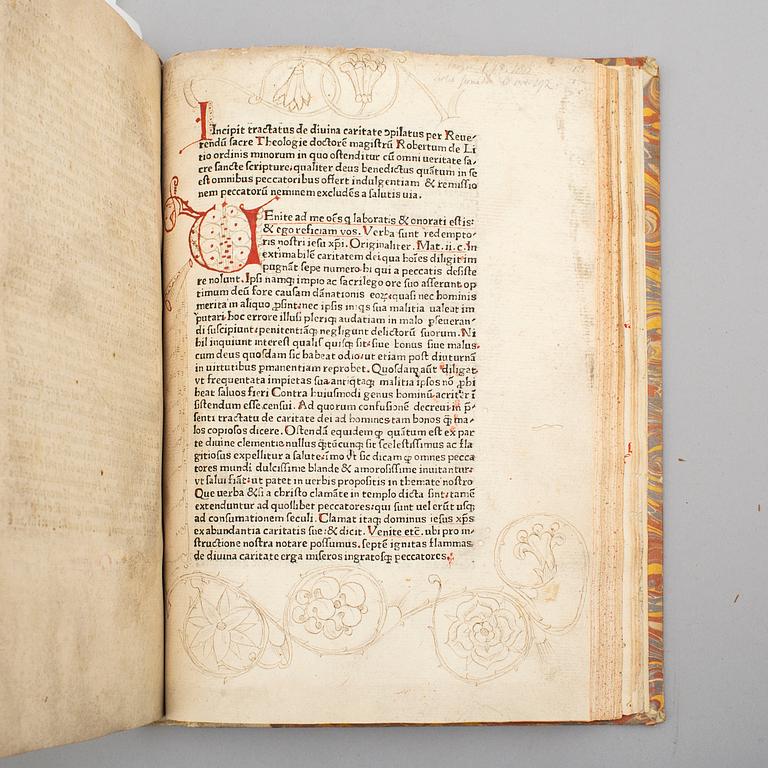 Incipit tractatus de diuina caritate ɔpilatus per Reue-
rendū sacre Theologie doctorē magistrū Robertum de Li
tio ordinis minorum in quo ostenditur cū omni ueritate sa-
cre sancte scripture, qualiter deus benedictus quātum in se
est omnibus peccatoribus offert indulgentiam & remissio
nem peccatorū neminem excludēs a salutis uia.
VEnite ad me oēs q laboratis & onorati estis:
& ego reficiam vos. Verba sunt redempto-
ris nostri iesu xp̄i. Originaliter. Mat. ii. c. In
extimabilē caritatem dei qua hoīes diligit im
pugnāt sepe numero hi qui a peccatis desiste
re nolunt. Ipsi namq̄ impio ac sacrilego ore suo asserunt op
timum deū fore causam dānationis eoꝝ: quasi nec hominis
merita in aliquo ꝓsint: nec ipsis in q̄s sua malitia ualeat im
putari. hoc errore illusi pleriq̄ audatiam in malo ꝑseueran-
di suscipiunt: penitentiāq̄ negligunt delictorū suorum. Ni
hil inquiunt interest qualis quisq̄ sit: siue bonus siue malus:
cum deus quosdam sic habeat odio: ut etiam post diuturnā
in uirtutibus ꝑmanentiam reprobet. Quosdam aūt diligat
vt frequentata impietas sua antiq̄taq̄ malitia ipsos nō ꝓhi
beat saluos fieri Contra huiusmodi genus hominū acriter ī
sistendum esse censui. Ad quorum confusionē decreui in p̄-
senti tractatu de caritate dei ad homines tam bonos q̄ ma-
los copiosos dicere. Ostendā equidem ꝙ quātum est ex par
te diuine clementie nullus q̄tūcunq̄ sit scelestissimus ac fla
gitiosus expellitur a salute: īmo vt sic dicam ꝙ omnes pecca
tores mundi dulcissime blande & amorosissime inuitantur:
vt salui fiāt: ut patet in uerbis propositis in themate nostro
Que uerba & si a christo clamāte in templo dicta sint: tamē
extenduntur ad quoslibet peccatores: qui sunt uel erūt usq̄
ad consumationem seculi. Clamat itaq̄ dominus iesus xp̄s
ex abundantia caritatis sue: & dicit. Venite etc̄. ubi pro in-
structione nostra notare possumus. septē ignitas flammas
de diuina caritate erga miseros ingratosq̄ peccatores.